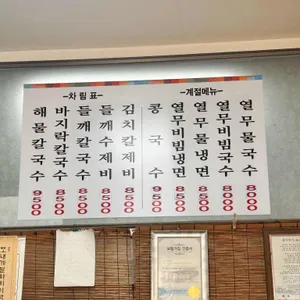 -차림표-
해물칼국수 9500
바지락칼국수 8500
들깨칼국수 8500
들깨수제비 8500
김치칼제비 8500
-계절메뉴-
콩국수 9500
열무비빔냉면 8500
열무물냉면 8500
열무비빔국수 8000
열무물국수 8000